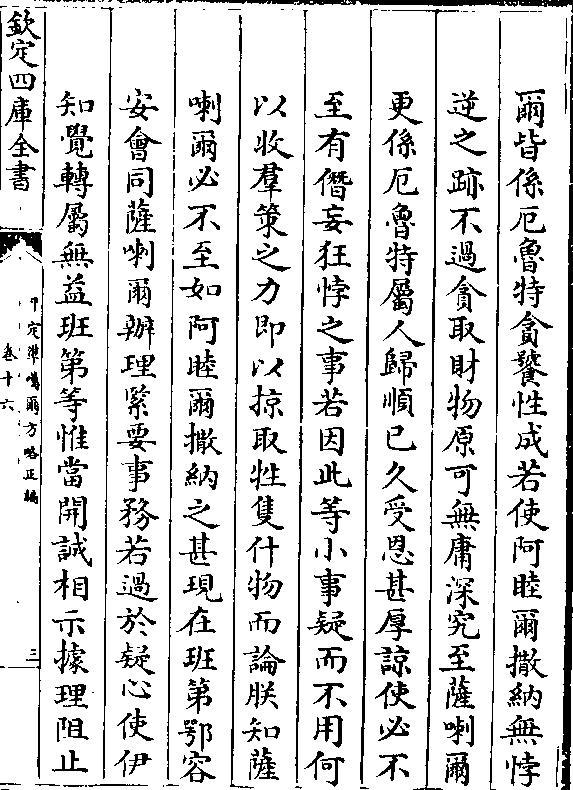 爾皆係厄魯特貪饕性成若使阿睦爾撒納無悖
逆之跡不過貪取財物原可無庸深究至薩喇爾
更係厄魯特屬人歸順已久受恩甚厚諒使必不
至有僭妄狂悖之事若因此等小事疑而不用何
以收羣策之力即以掠取牲隻什物而論朕知薩
喇爾必不至如阿睦爾撒納之甚現在班第鄂容
安會同薩喇爾辦理緊要事務若過於疑心使伊
知覺轉屬無益班第等惟當開誠相示據理阻止
欽定四庫全書
平定準噶爾方略正編
卷十六
三